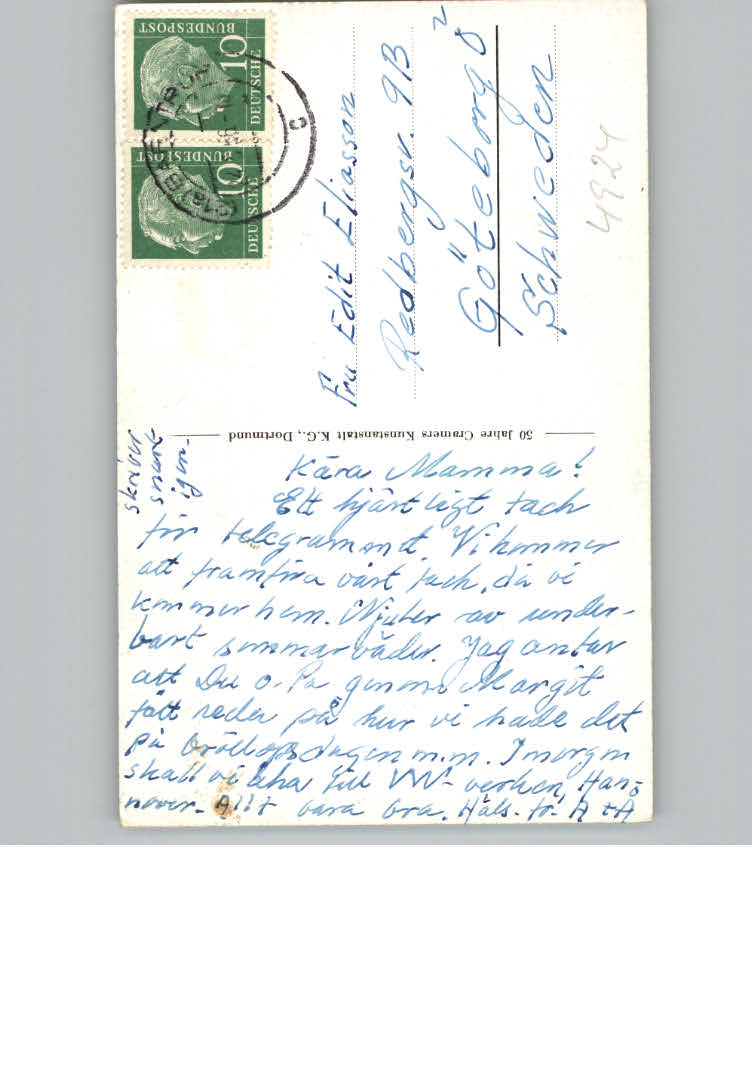 Kära Mamma!
Ett hjärtligt tack
för telegrammet. Vi kommer
att framföra vårt tack, då vi
kommer hem. Njuter av under-
bart sommarväder. Jag antar
att Du o. Pa genom Margit
fått reda på hur vi hade det
på bröllopsdagen m.m. I morgon
skall vi åka till VW-verken, Han-
nover. Allt bara bra. Häls. fr. A + A
skriver
snart
igen.
50 Jahre Cramers Kunstanstalt K.G., Dortmund
Fru Edit Eliasson
Redbergsv. 9B 2
Göteborg Ö
Schweden
4924
DEUTSCHE
BUNDESPOST
10
DEUTSCHE
BUNDESPOST
10
c